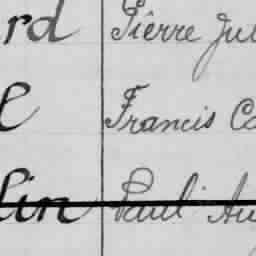 rd Pierre Jul
l Francis Ca
lin Paul Au